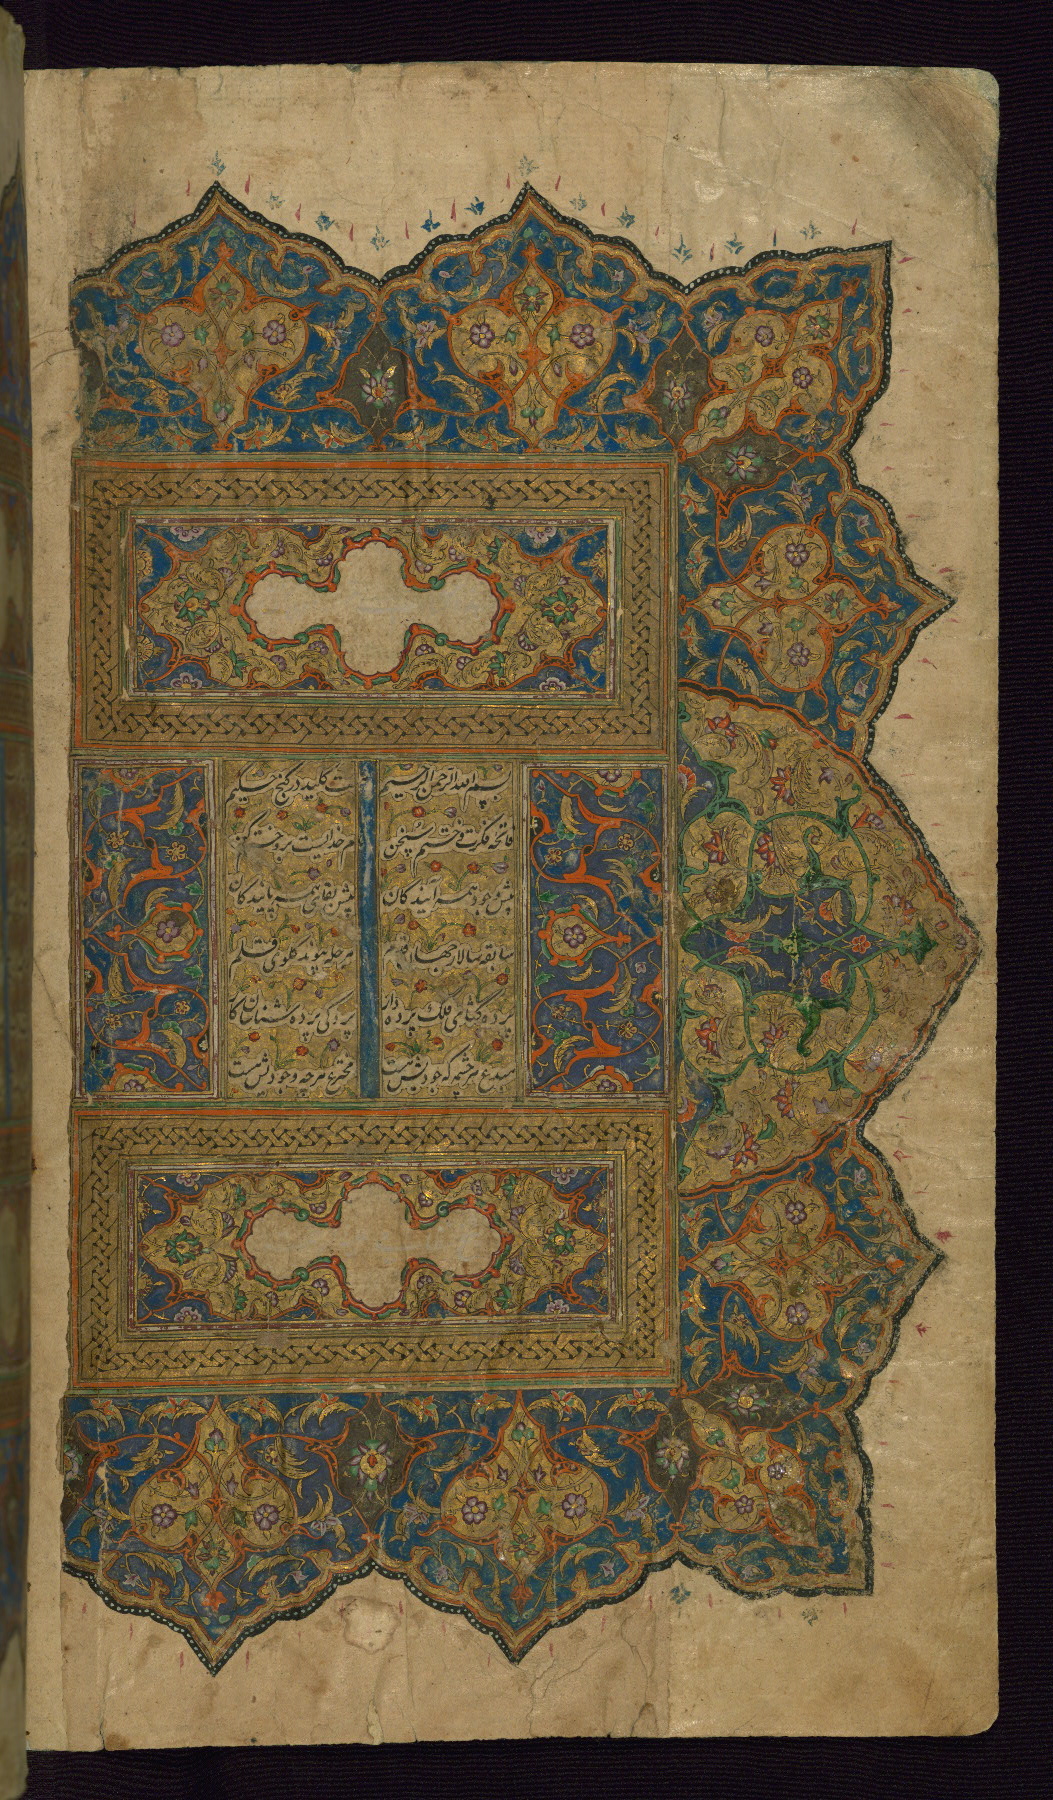 بسم الله الرحمن الرحیم هست کلید در گنج حکیم
فاتحه فکرت و ختم سخن نام خدایست برو ختم کن
پیش وجود همه آیندگان پیش بقای همه پایندگان
سابقه سالار جهان قدم مرحله پیوند گلوی قلم
پرده گشای فلک پرده دار پردگی پرده شناسان کار
مبدع هر چشمه که جودیش هست مخترع هر چه وجودیش هست